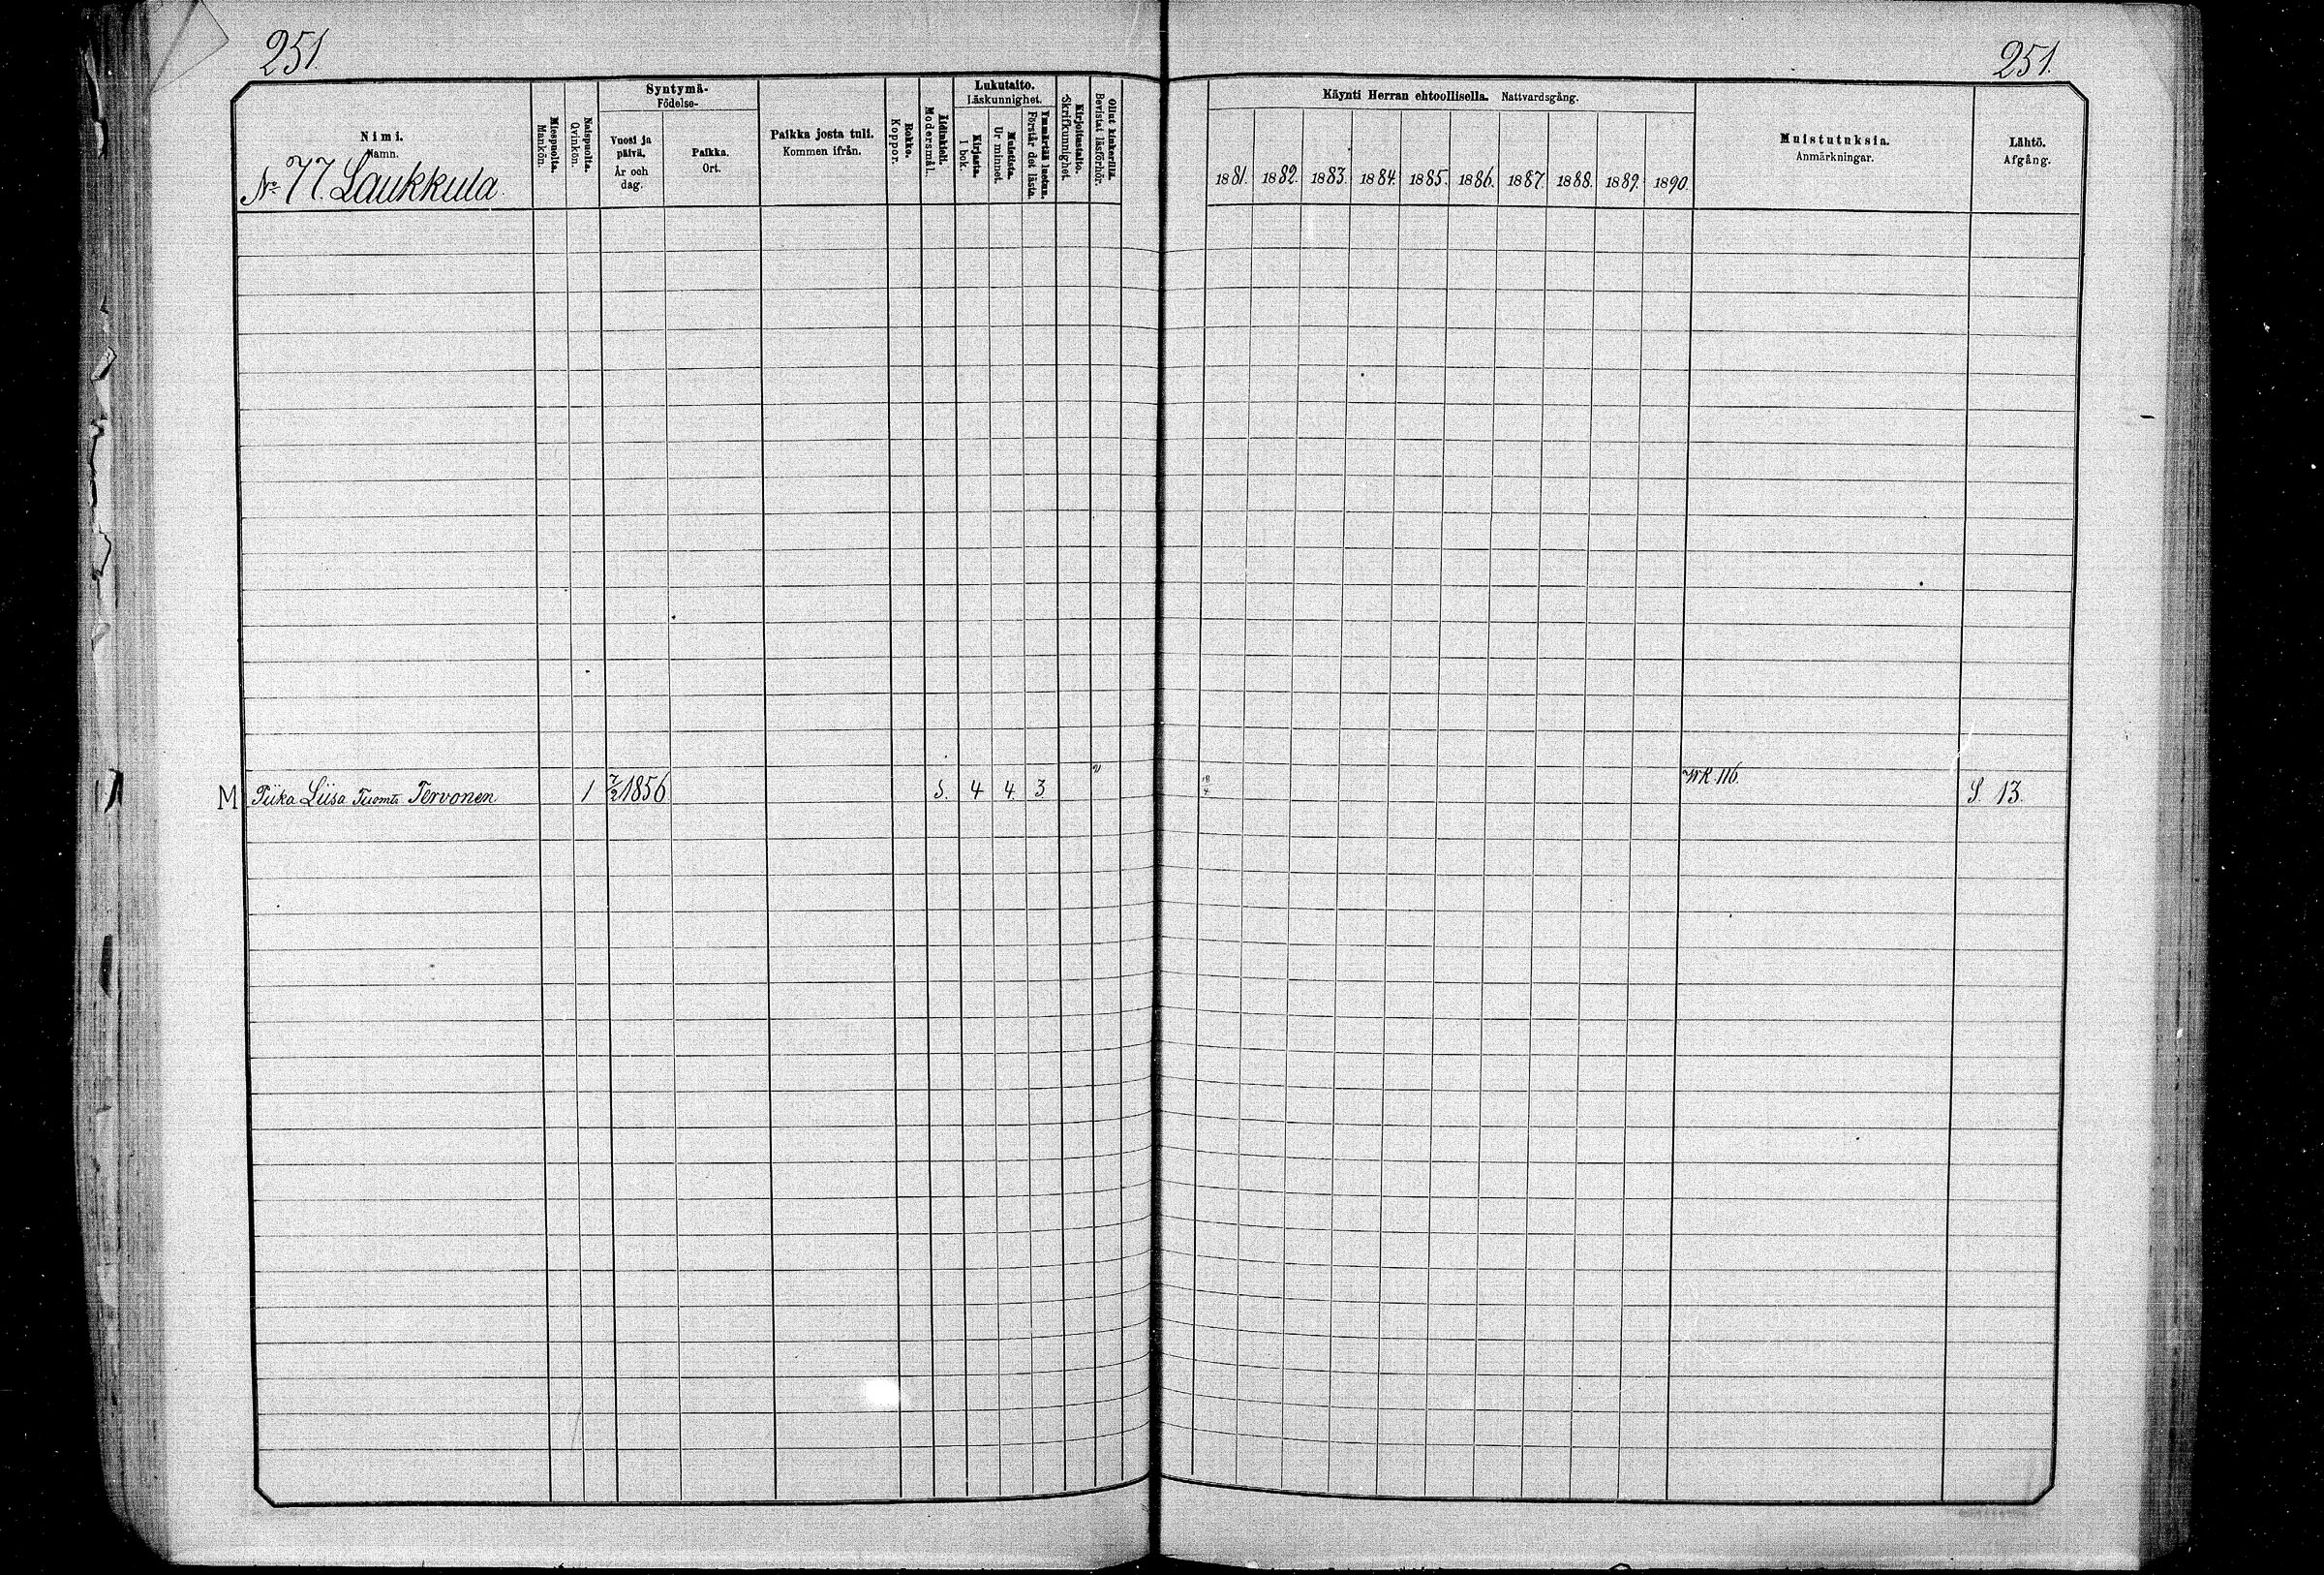 251.
251.
Nimi.
Namn.
No 77. Laukkula.
Miespuolta.
Mankön.
Naispuolta.
Qvinkön.
Syntymä-
Födelse-
Vuosi ja päivä.
År och dag.
Paikka.
Ort.
Paikka josta tuli.
Kommen ifrån.
Rokko.
Koppor.
Äidinkieli.
Modersmål.
Lukutaito.
Läskunnighet.
Kirjasta.
I bok.
Muistista.
Ur minnet.
Ymmärtää luetun.
Förstår det lästa.
Kirjoitustaito.
Skrifkunnighet.
Ollut kinkerillä.
Bevistat läsförhör.
Käynti Herran ehtoollisella. Nattvardsgång.
1881. 1882. 1883. 1884. 1885. 1886. 1887. 1888. 1889. 1890.
Muistutuksia.
Anmärkningar.
Lähtö.
Afgång.
M Piika Liisa Tuomt. Tervonen 1 7/2 1856 S. 4 4. 3 WR. 116. S. 13.